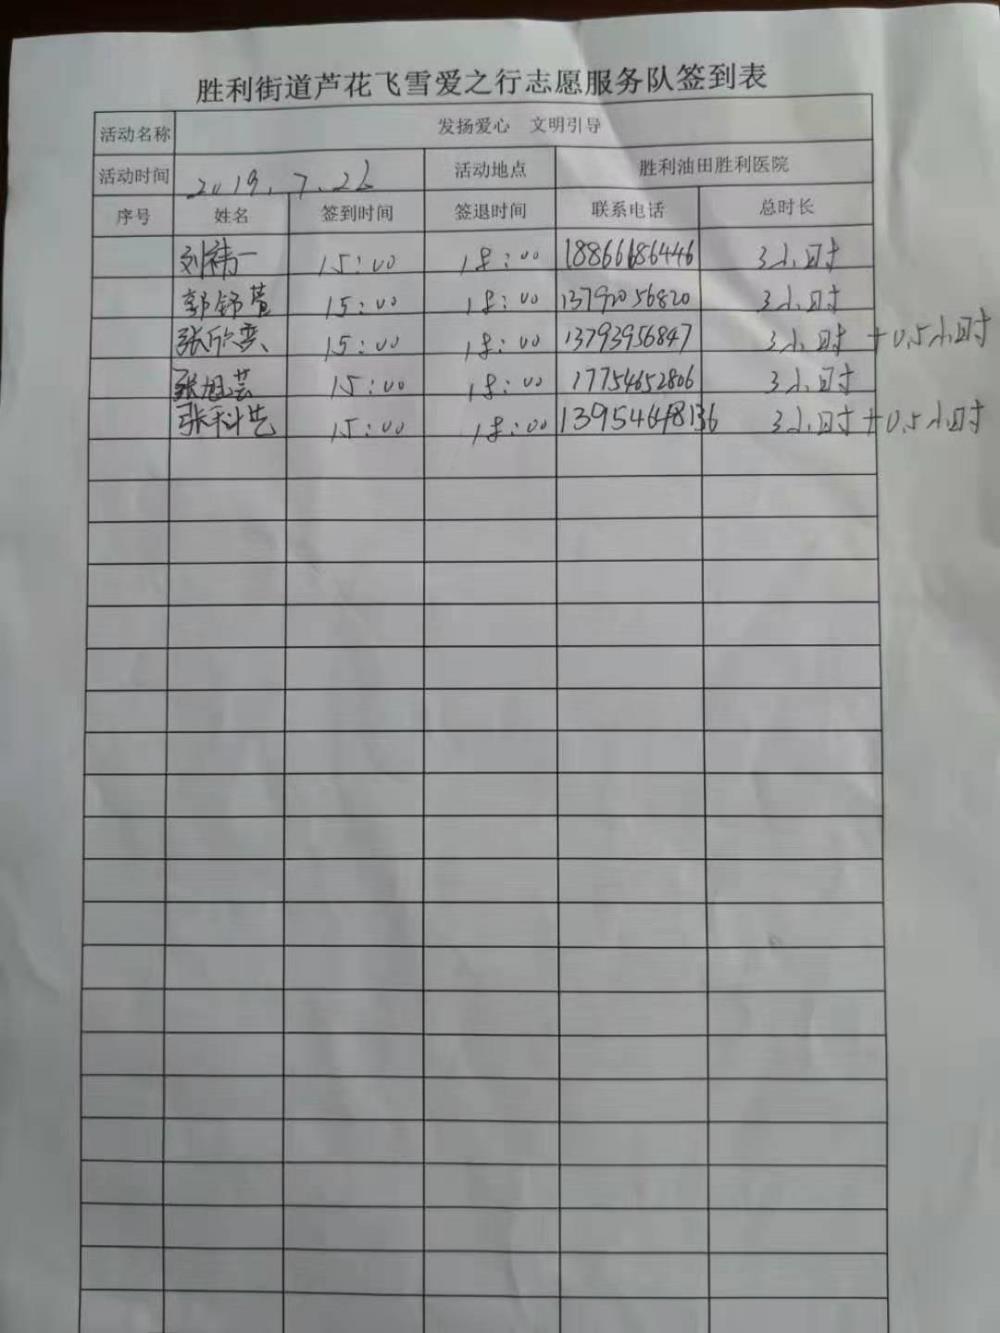 胜利街道芦花飞雪爱之行志愿服务队签到表
活动名称 发扬爱心 文明引导
活动时间 2019.7.22 活动地点 胜利油田胜利医院
序号 姓名 签到时间 签退时间 联系电话 总时长
刘祎一 15:00 18:00 18866686446 3小时
郭铈萱 15:00 18:00 13792056820 3小时
张欣奕 15:00 18:00 13793956847 3小时+0.5小时
张旭芸 15:00 18:00 17754652806 3小时
张科艺 15:00 18:00 13954648136 3小时+0.5小时